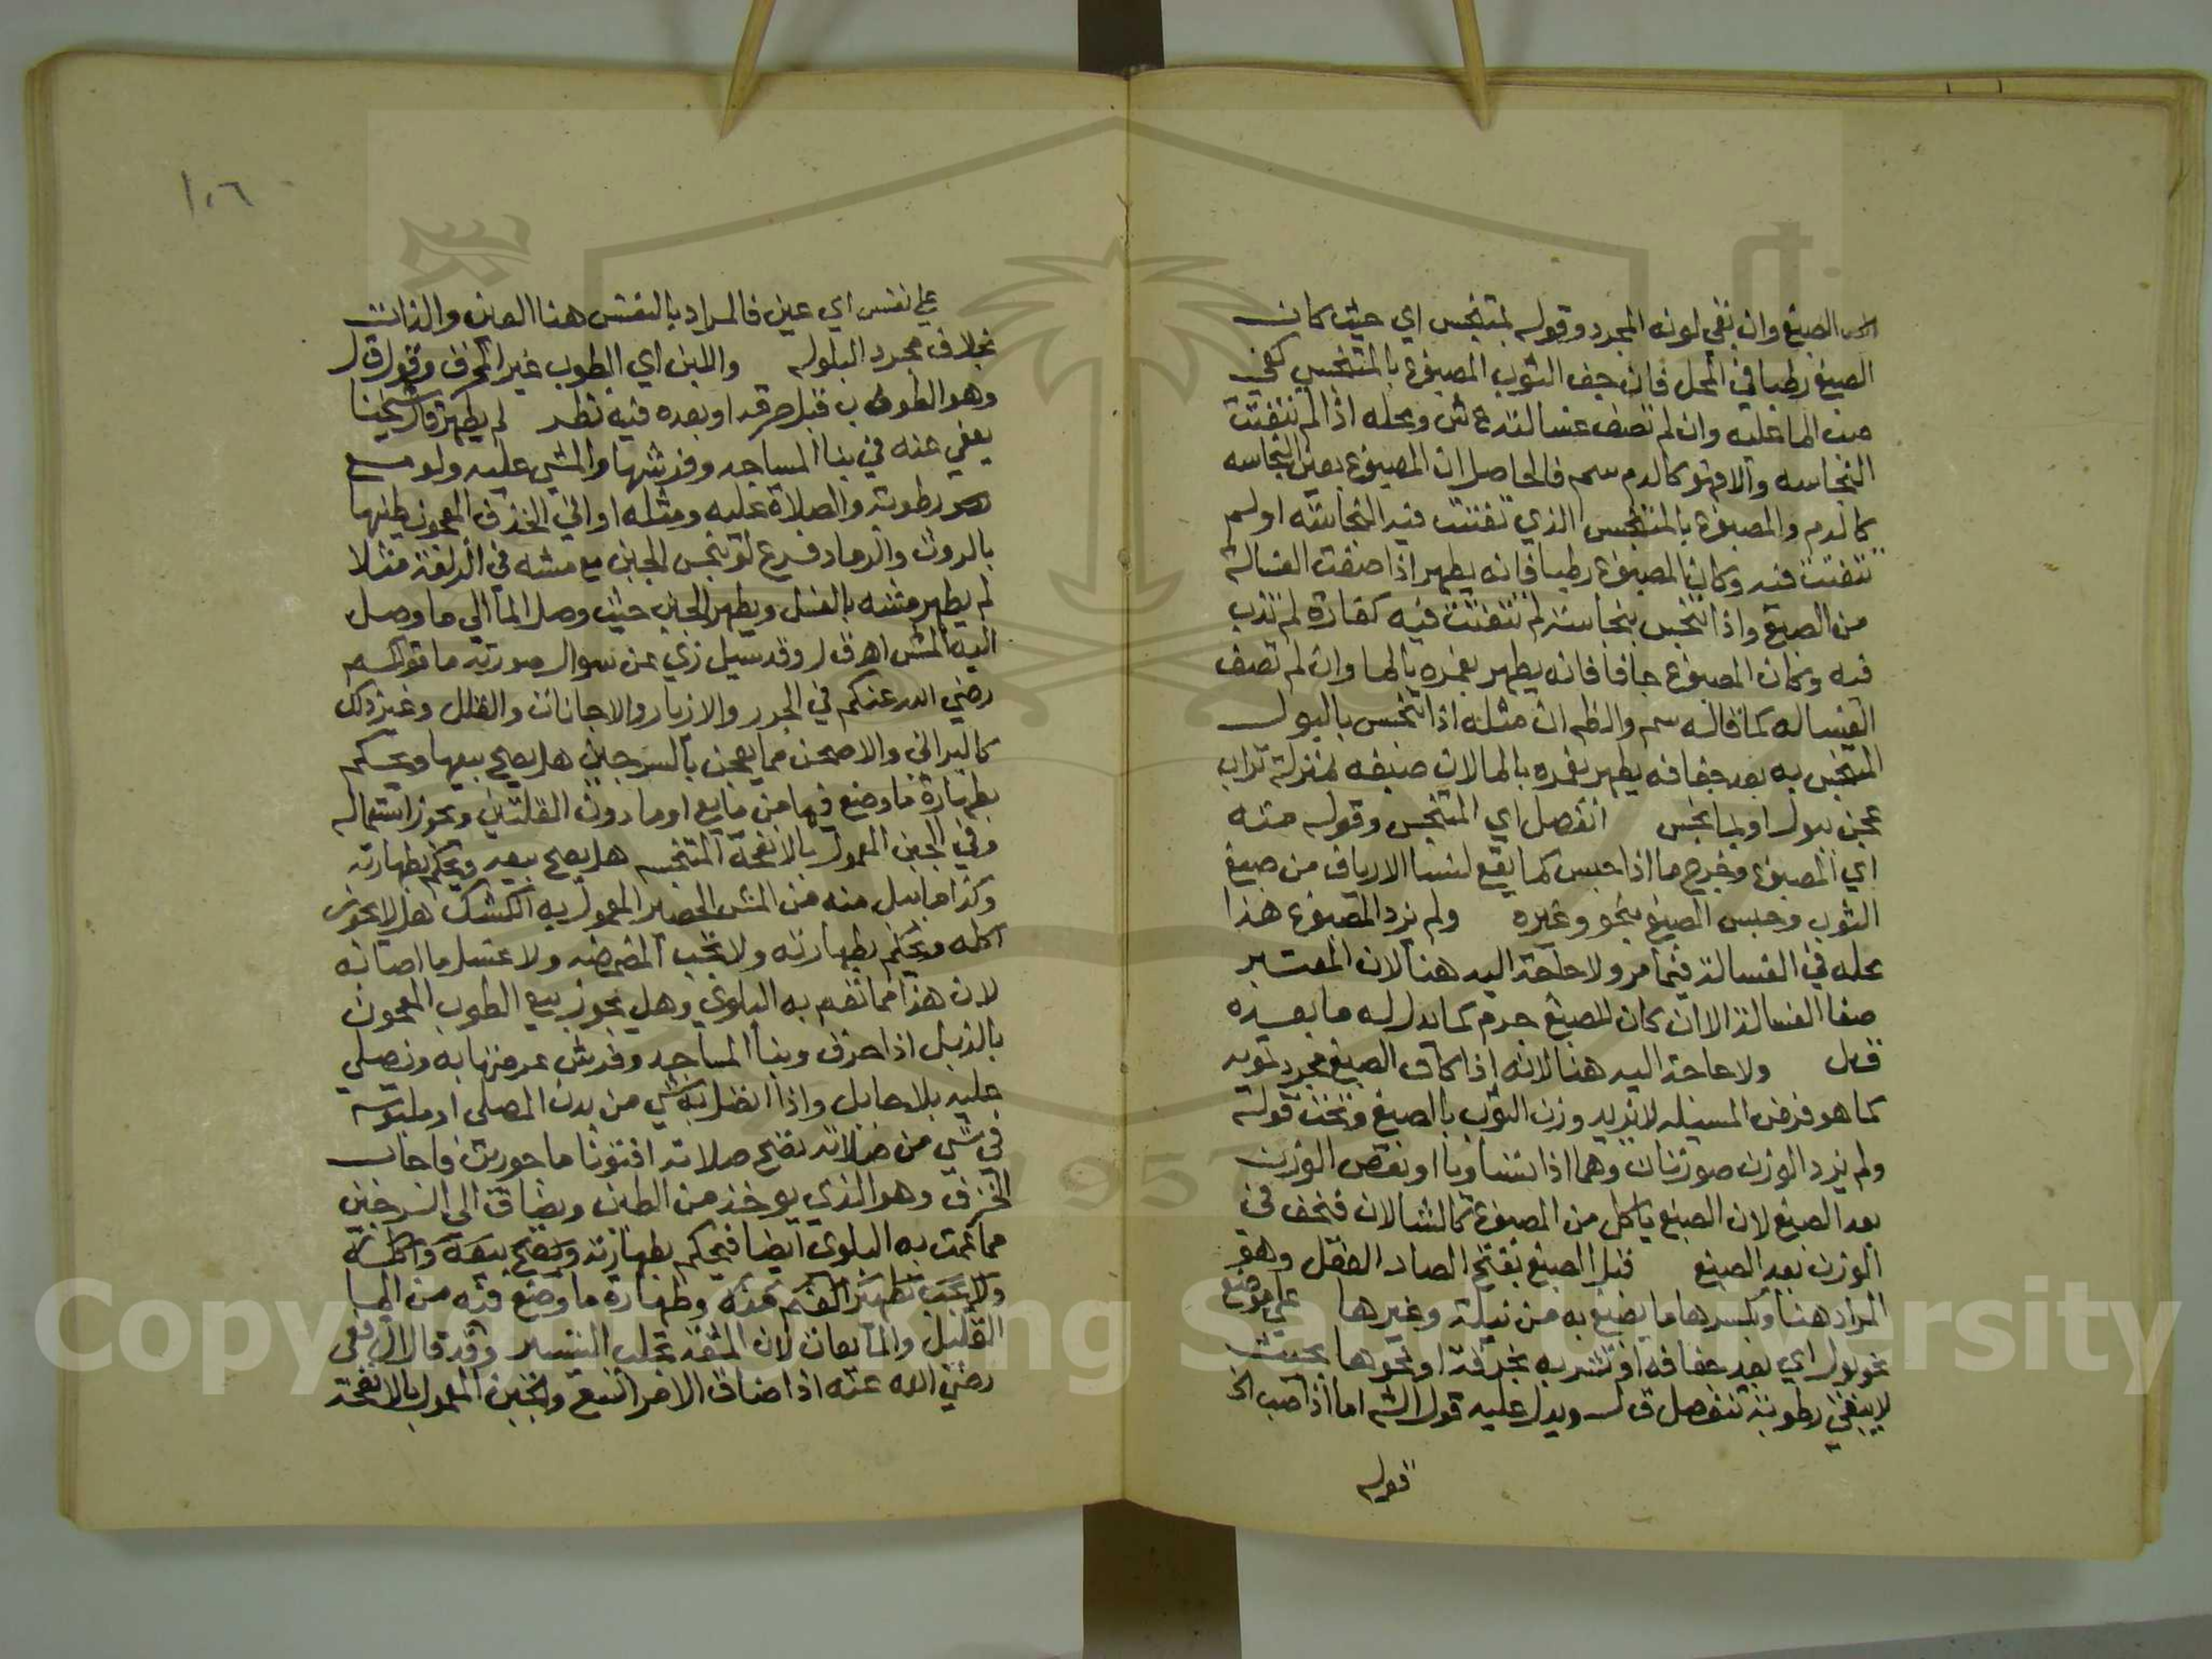 الصبغ وان بقي لونه المجرد وقوله لمتنجس اي حيث كان
الصبغ رطبا في المحل فان جف الثوب المصبوغ بالمتنجس كفى
صب الما عليه وان لم تصف غسالته ع ش ومحله اذا لم تتفتت
النجاسه والا فهو كالدم سم فالحاصل ان المصبوغ بعين النجاسه
كالدم والمصبوغ بالمتنجس الذي تفتتت فيه النجاسة او لم
تتفتت فيه وكان المصبوغ رطبا فانه يطهر اذا صفت الغسالة
من الصبغ واذا تنجس بنجاسة لم تتفتت فيه كفارة لم تذب
فيه وكان المصبوغ جافا فانه يطهر بغمره بالما وان لم تصف
الغساله كما قاله سم والظ ان مثله اذا تنجس بالبول
المتنجس به بعد جفافه يطهر بغمره بالما لان صبغه بمنزلة تراب
عجن ببول او بما نجس انفصل اي المتنجس وقوله منه
اي المصبوغ وخرج ما اذا حبس كما يقع لنسا الارياف من صبغ
الثوب وحبس الصبغ بنحو وغيره ولم يزد المصبوغ هذا
محله في الغسالة فيما مر ولا حاجة اليه هنا لان المعتبر
صفا الغسالة الا ان كان للصبغ جرم كما يدل له ما بعده
ق ل ولا حاجة اليه هنا لانه اذا كان الصبغ مجرد تمويه
كما هو فرض المسيله لا يزيد وزن الثوب بالصبغ وتحت قوله
ولم يزد الوزن صورتان وهما اذا تساويا او نقص الوزن
بعد الصبغ لان الصبغ ياكل من المصبوغ كالشالان فيخف في
الوزن بعد الصبغ قبل الصبغ بفتح الصاد الفعل وهو
المراد هنا وبكسرها ما يصبغ به من نيلة وغيرها على موضع
نحو بول اي بعد جفافه او نشر به بخرقة او نحوها بحيث
لا يبقى رطوبة تنفصل ق ل ويدل عليه قول الش اما اذا صب الخ
قوله
١٠٦
على نفس اي عين فالمراد بالنفس هنا العين والذات
بخلاف مجرد البلوله واللبن اي الطوب غير المحرق وقول ق ل
وهو الطوب قبل حرقه او بعده فيه نظر لم يطهر قال شيخنا
يعفى عنه في بنا المساجد وفرشها والمشي عليه ولو مع
رطوبة والصلاة عليه ومثله اواني الخزف المعجون طينها
بالروث والرماد فرع لو تنجس الجبن مع مشه في الزلعة مثلا
لم يطهر مشه بالغسل ويطهر الجبن حيث وصل الما الى ما وصل
اليه المش اه ق ل وقد سيل زي عن سوال صورته ما قولكم
رضي الله عنكم في الجرر والازيار والاجانات والقلل وغير ذلك
كالبراني والاصحن مما يعجن بالسرجين هل يصح بيعها ويحكم
بطهارة ما وضع فيها من مايع او ما دون القلتين ويجوز استعماله
وفي الجبن المعمول بالانفحة المتنجسه هل يصح بيعه ويحكم بطهارته
وكذا ما يسل منه من المش الحصير المعمول به الكشك هل لا يجوز
اكله ويحكم بطهارته ولا تجب المضمضه ولا غسل ما اصابه
لان هذا مما تعم به البلوى وهل يجوز بيع الطوب المعجون
بالزبل اذا حرق وبنا المساجد وفرش عرصتها به ونصلي
عليه بلا حايل واذا اتصل به شي من بدن المصلي او ملبوسه
في شي من صلاته تصح صلاته افتونا ماجورين فاجاب
الخزف وهو الذي يوخذ من الطين ويضاف الى السرجين
مما عمت به البلوى ايضا فيحكم بطهارته ويصح بيعه واكله
ولا يجب تطهير الفم منه وطهارة ما وضع فيه من الما
القليل والمايعات لان المشقة تجلب التيسير وقد قال الشافعي
رضي الله عنه اذا ضاق الامر اتسع والجبن المعمول بالانفحة